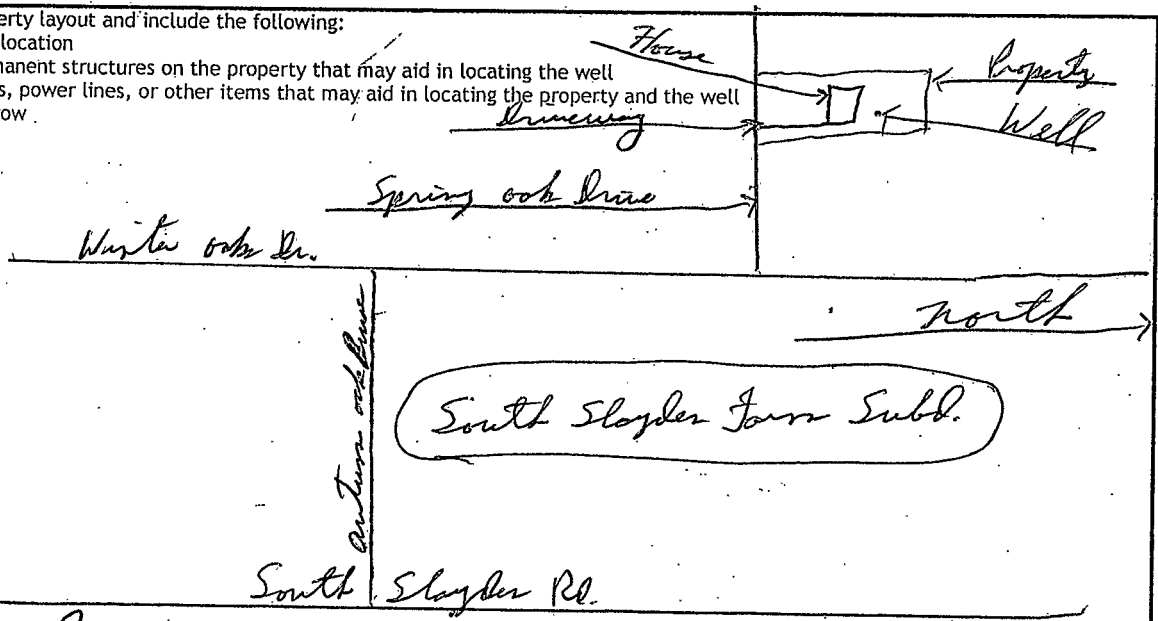 erty layout and include the following:
location
manent structures on the property that may aid in locating the well
s, power lines, or other items that may aid in locating the property and the well
ow
House
Property
Driveway
Well
Spring oak Drive
Winter oak Dr.
North
autumn oak Drive
South Slayden Farm Subd.
South Slayden Rd.